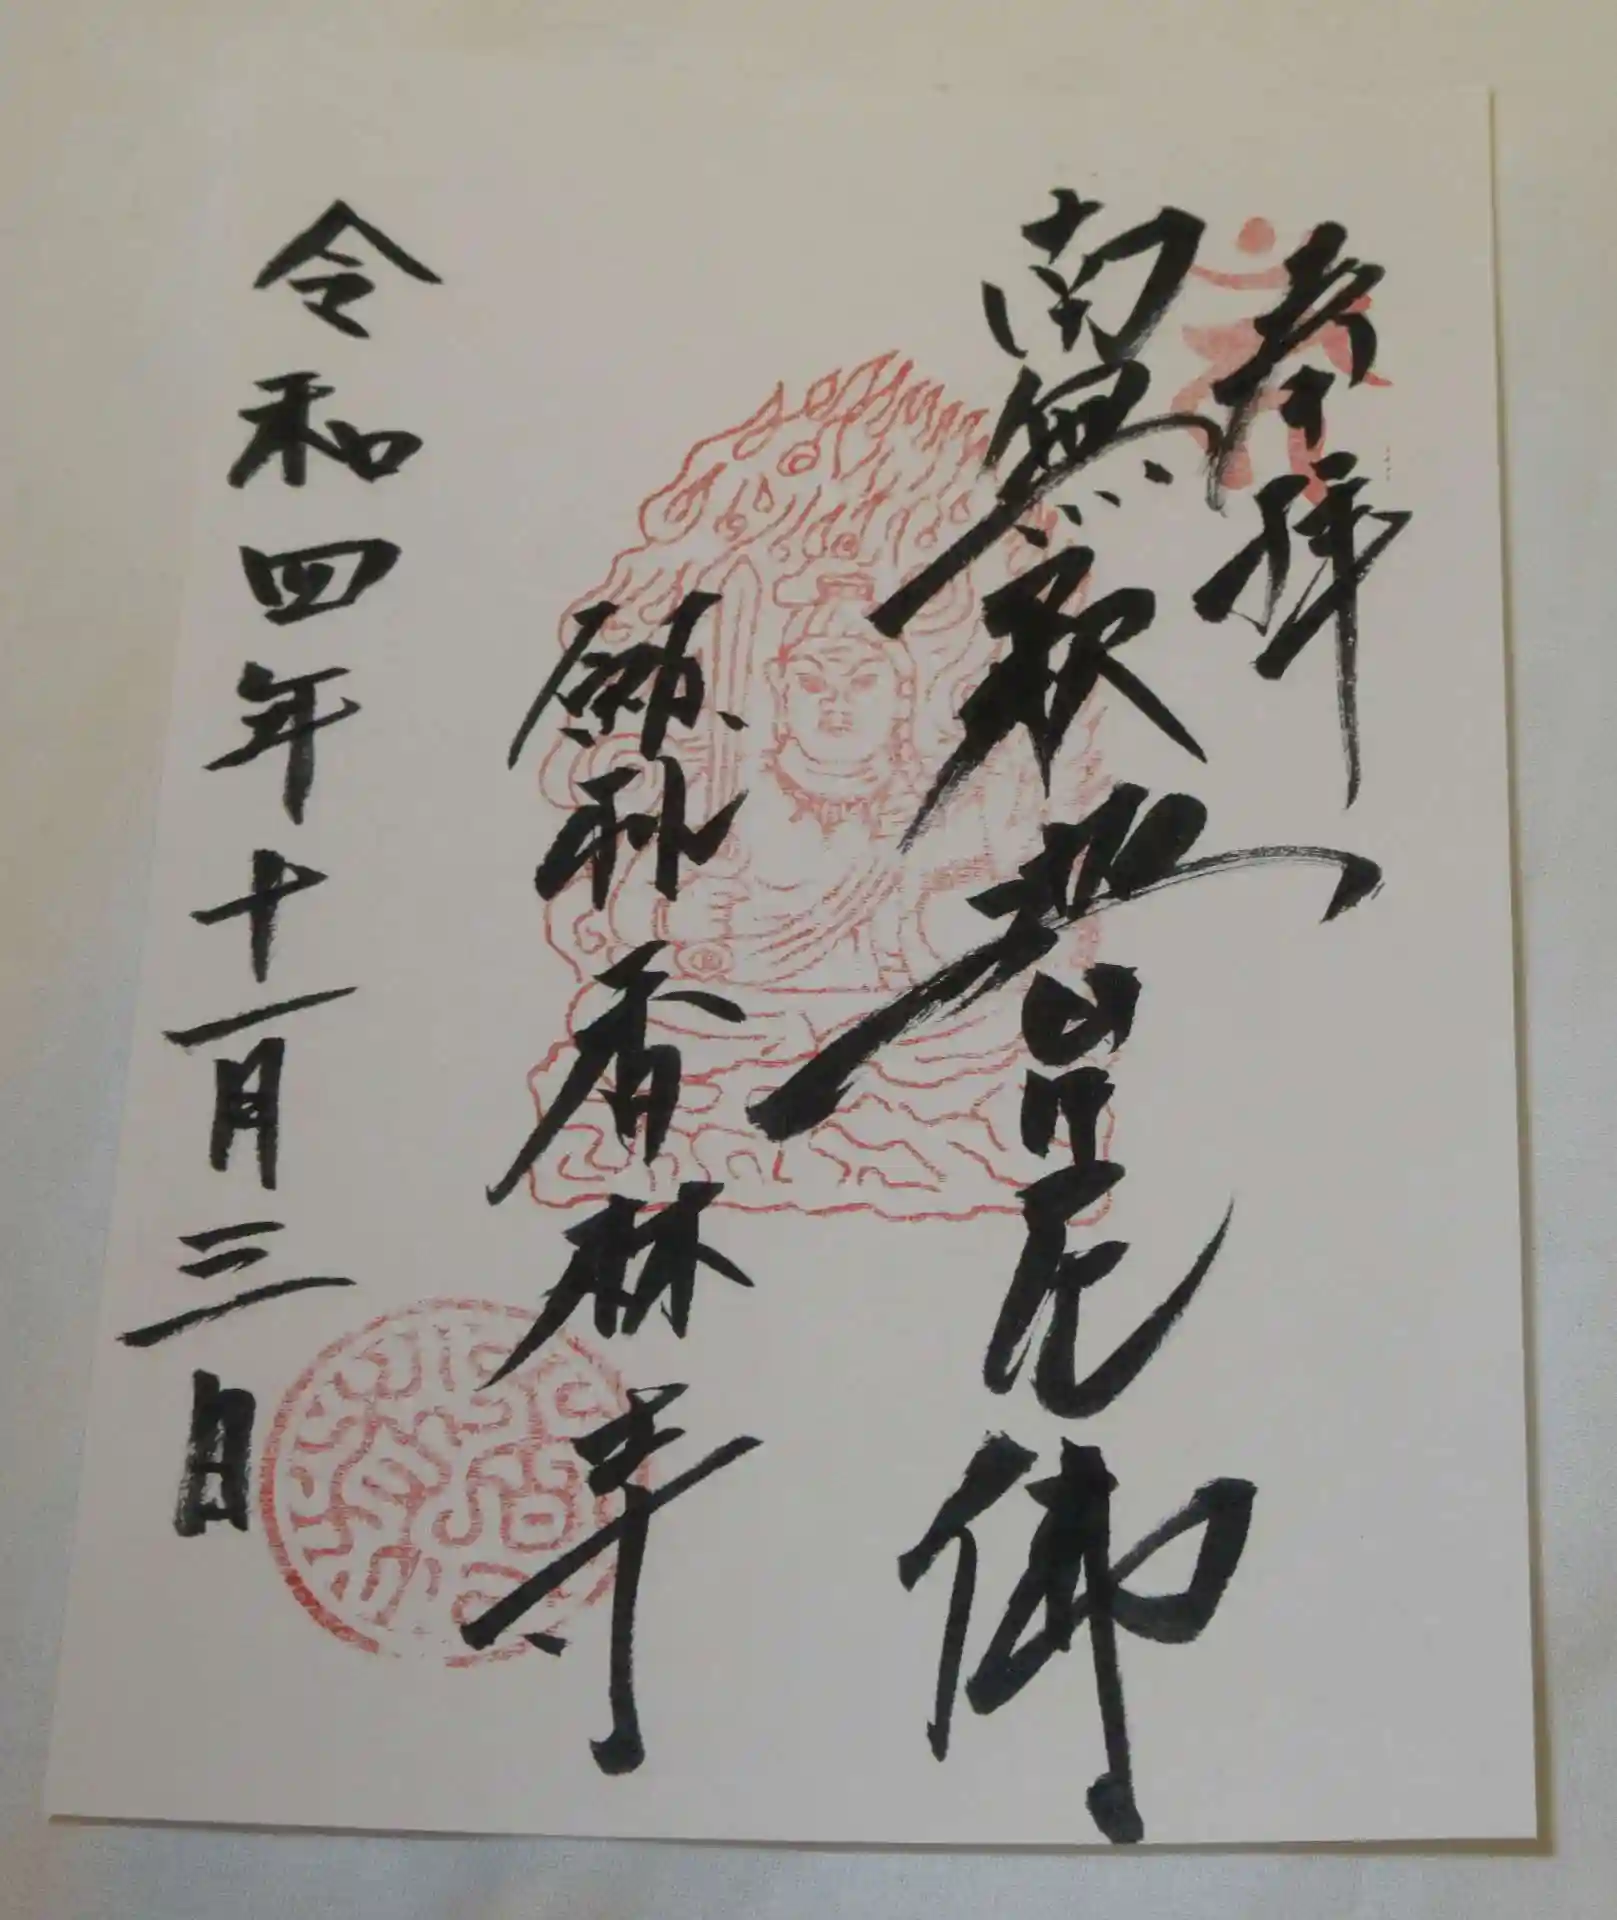 奉拝
南無釈迦牟尼佛
香林寺
令和四年十一月三日